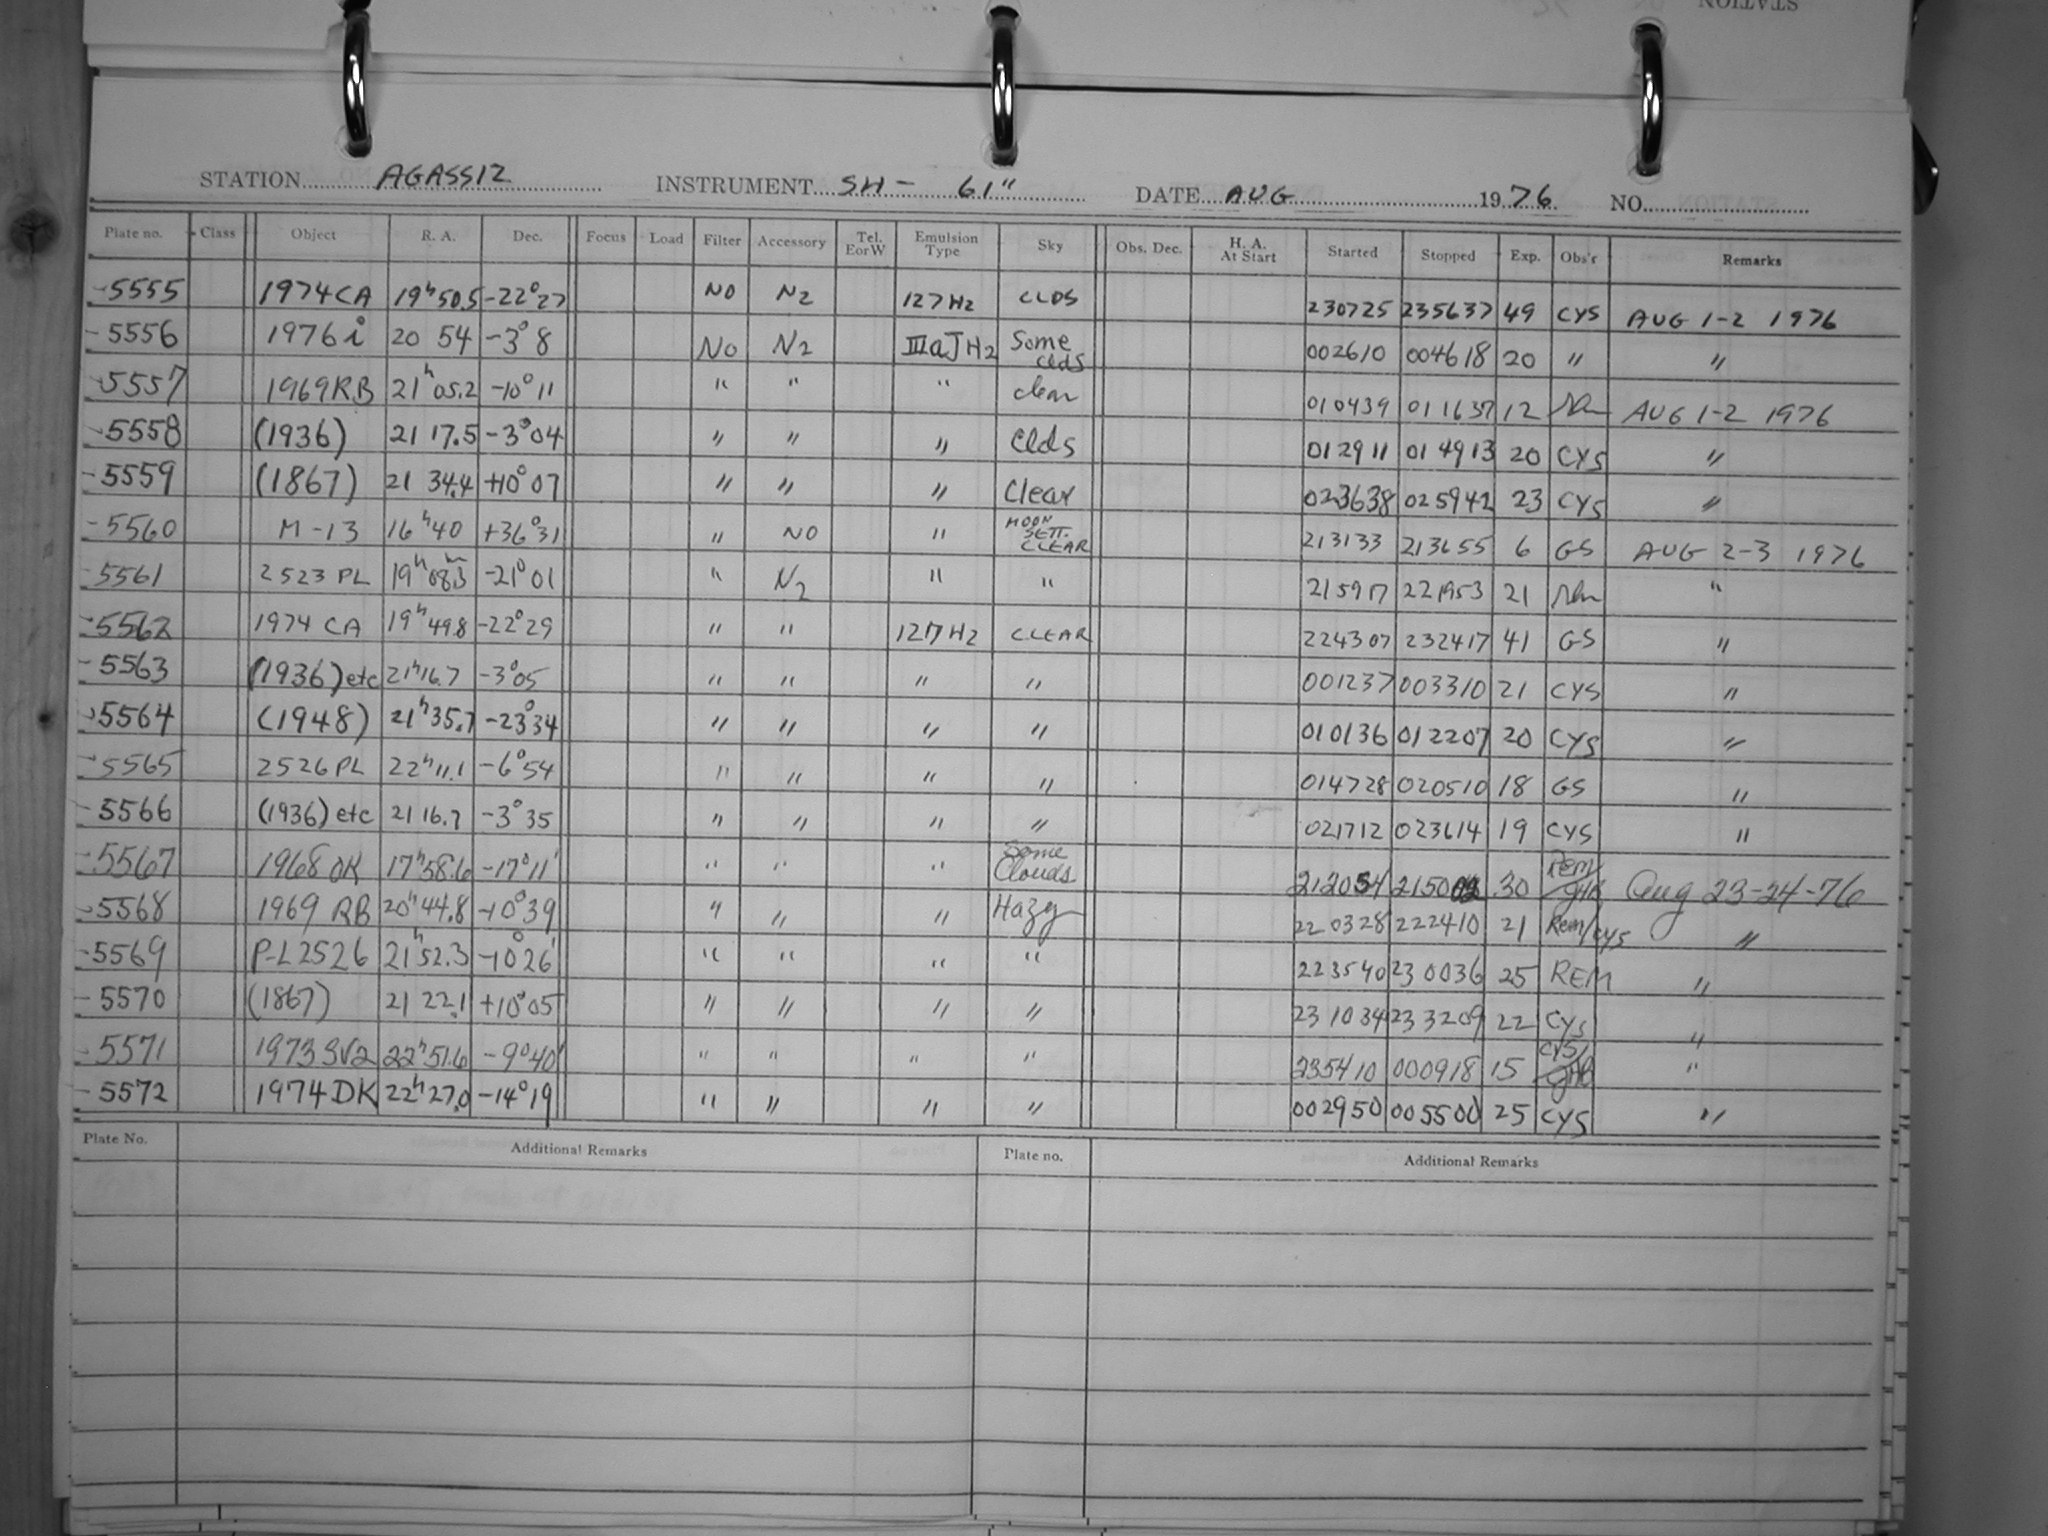 STATION AGASSIZ INSTRUMENT SH - 61" DATE AUG 1976 NO.
Plate no. Class Object R. A. Dec. Focus Load Filter Accessory Tel. E or W Emulsion Type Sky Obs. Dec. H. A. At Start Started Stopped Exp. Obs'r Remarks
-5555 1974CA 19h50.5 -22°27 NO N2 127H2 CLDS 230725 235637 49 CYS AUG 1-2 1976
-5556 1976i 20 54 -3°8 NO N2 IIIaJH2 Some clds 002610 004618 20 " "
-5557 1969RB 21h05.2 -10°11 " " " clear 010439 011637 12 AUG 1-2 1976
-5558 (1936) 21 17.5 -3°04 " " " Clds 012911 014913 20 CYS "
-5559 (1867) 21 34.4 +10°07 " " " Clear 023638 025942 23 CYS "
-5560 M-13 16h40 +36°31 " NO " MOON SETT. CLEAR 213133 213655 6 GS AUG 2-3 1976
-5561 2523 PL 19h08.3 -21°01 " N2 " " 215917 221953 21 "
-5562 1974 CA 19h49.8 -22°29 " " 127H2 CLEAR 224307 232417 41 GS "
-5563 (1936) etc 21h16.7 -3°05 " " " " 001237 003310 21 CYS "
-5564 (1948) 21h35.7 -23°34 " " " " 010136 012207 20 CYS "
-5565 2526PL 22h11.1 -6°54 " " " " 014728 020510 18 GS "
-5566 (1936) etc 21 16.7 -3°35 " " " " 021712 023614 19 CYS "
-5567 1968 OK 17h58.6 -17°11' " " " Some Clouds 212054 215002 30 Rem/JHB Aug 23-24-76
-5568 1969 RB 20h44.8 -10°39 " " " Hazy 220328 222410 21 Rem/CYS "
-5569 P-L2526 21h52.3 -10°26' " " " " 223540 230036 25 REM "
-5570 (1867) 21 22.1 +10°05 " " " " 231034 233209 22 CYS "
-5571 1973SV2 22h51.6 -9°40' " " " " 235410 000918 15 CYS/JHB "
-5572 1974DK 22h27.0 -14°19 " " " " 002950 005500 25 CYS "
Plate No. Additional Remarks Plate no. Additional Remarks